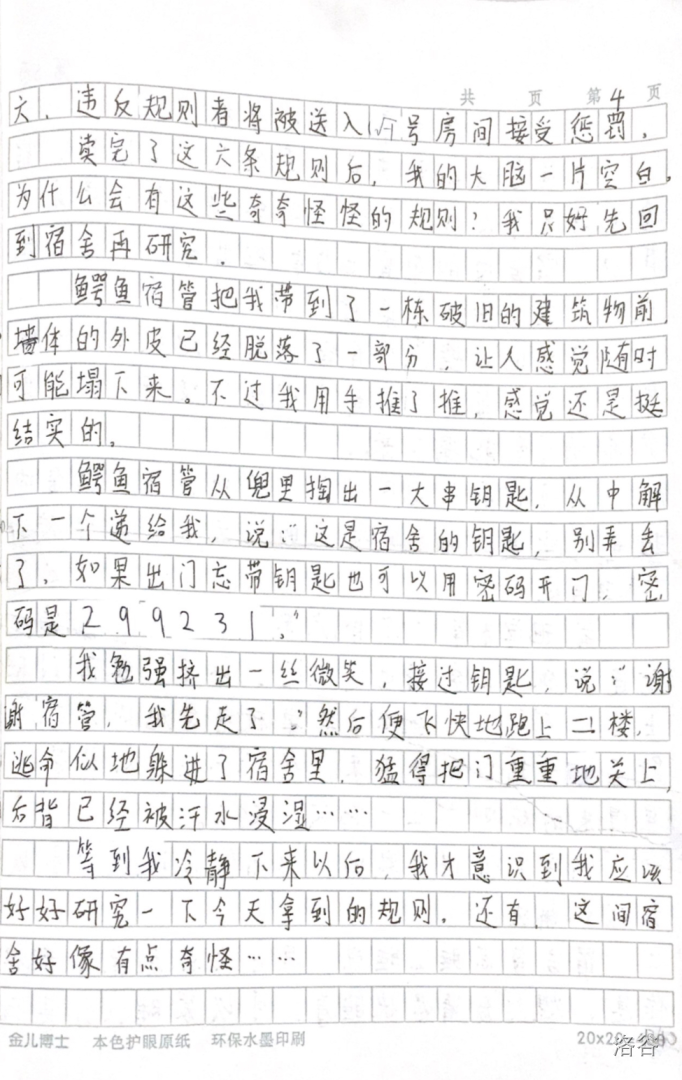 共 页 第4页
六、违反规则者将被送入 号房间接受惩罚。
读完了这六条规则后，我的大脑一片空白。
为什么会有这些奇奇怪怪的规则？我只好先回
到宿舍再研究。
鳄鱼宿管把我带到了一栋破旧的建筑物前，
墙体的外皮已经脱落了一部分，让人感觉随时
可能塌下来。不过我用手推了推，感觉还是挺
结实的。
鳄鱼宿管从兜里掏出一大串钥匙，从中解
下一个递给我，说：“这是宿舍的钥匙，别弄丢
了，如果出门忘带钥匙也可以用密码开门，密
码是299231。”
我勉强挤出一丝微笑，接过钥匙，说：“谢
谢宿管，我先走了。”然后便飞快地跑上二楼，
逃命似地躲进了宿舍里，猛得把门重重地关上，
后背已经被汗水浸湿……
等到我冷静下来以后，我才意识到我应该
好好研究一下今天拿到的规则。还有，这间宿
舍好像有点奇怪……
金儿博士 本色护眼原纸 环保水墨印刷 20×20
洛谷